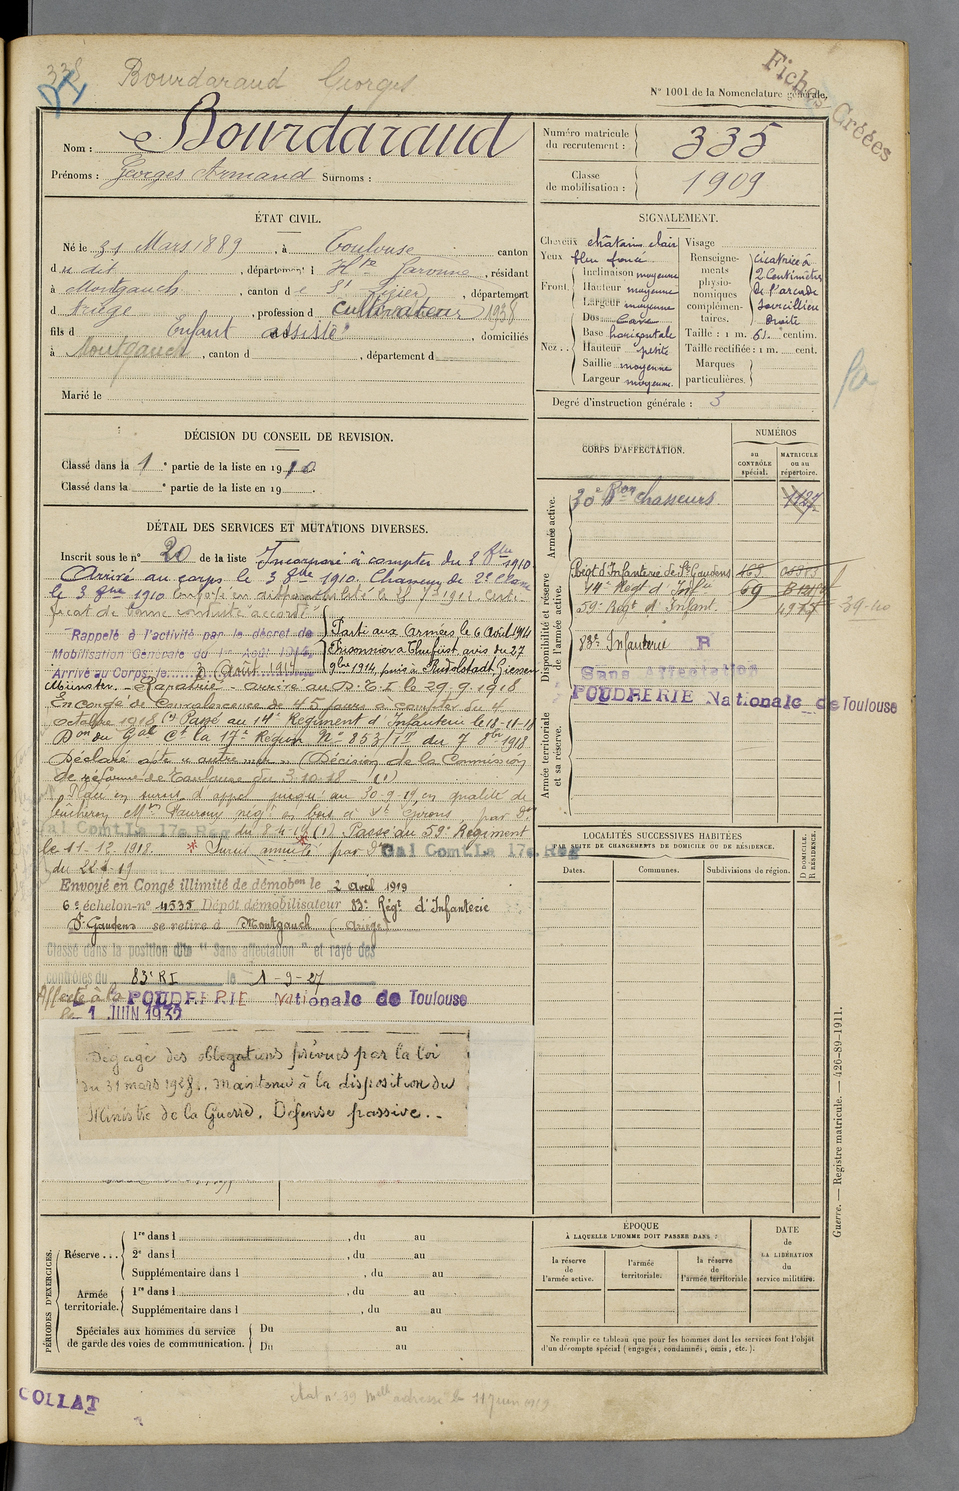 338
Bourdaraud Georges
Fiches Créées
N° 1001 de la Nomenclature générale.
Nom : Bourdaraud
Prénoms : Georges Armand Surnoms :
Numéro matricule du recrutement : 335
Classe de mobilisation : 1909
ÉTAT CIVIL.
Né le 31 Mars 1889, à Toulouse canton
du dit, département Hte Garonne, résidant
à Montgauch, canton de St Lizier, département
d Ariège, profession d cultivateur 1938
fils d Enfant assisté, domiciliés
à Montgauch, canton d , département d
Marié le
SIGNALEMENT.
Cheveux châtain clair
Yeux bleu foncé
Front. Inclinaison moyenne
Hauteur moyenne
Largeur moyenne
Nez.. Dos cave
Base horizontale
Hauteur petite
Saillie moyenne
Largeur moyenne.
Visage
Renseignements physionomiques complémentaires. cicatrice à 2 centimètres de l'arcade sourcilière droite
Taille : 1 m. 61 centim.
Taille rectifiée : 1 m. cent.
Marques particulières.
Degré d'instruction générale : 3
DÉCISION DU CONSEIL DE REVISION.
Classé dans la 1e partie de la liste en 1910
Classé dans la e partie de la liste en 19 .
CORPS D'AFFECTATION.
NUMÉROS
au CONTRÔLE spécial.
MATRICULE ou au répertoire.
Armée active.
30e Bon Chasseurs 1127
Disponibilité et réserve de l'armée active.
Régt d'Infanterie de St Gaudens 468
14e Régt d'Infie 69
59e Régt d'Infant.
39-40
83e Infanterie R
Sans Affectation
POUDRERIE Nationale de Toulouse
Armée territoriale et sa réserve.
DÉTAIL DES SERVICES ET MUTATIONS DIVERSES.
Inscrit sous le n° 20 de la liste Incorporé à compter du 1 8bre 1910
Arrivé au corps le 3 8bre 1910. Chasseur de 2e Classe
le 3 8bre 1910 Certi-
ficat de bonne conduite "accordé"
Rappelé à l'activité par le décret de
Mobilisation Générale du 1er Août 1914.
Arrivé au Corps, le 3 Août 1914
Parti aux Armées le 6 Août 1914
Prisonnier à
9bre 1914, puis à Rudolstadt, Giessen
Münster. - Rapatrié - arrivé au D.C.I. le 29.9.1918
En congé de Convalescence de 45 jours à compter du 4
octobre 1918 (1) Passé au 14e Régiment d'Infanterie le 18-11-18
Don du Gal Ct la 17e Région N° 853/17 du 7 8bre 1918
Déclaré apte (Décision de la Commission
de réforme de Toulouse du 3.10.18 - (1)
Placé en sursis d'appel jusqu'au 30-9-19, en qualité de
bûcheron négt en bois à St Girons, par Don
Gal Comt. La 17e Rég du 8-4-19 (1) Passé au 59e Régiment
le 11-12 1918. Sursis annulé par Don Gal Comt. La 17e Rég
Envoyé en Congé illimité de démobon le 2 Avril 1919
6e échelon-n° 4535 Dépôt démobilisateur 83e Régt d'Infanterie
St Gaudens se retire à Montgauch (Ariège)
Classé dans la position dite "Sans affectation" et rayé des
contrôles du 83e RI le 1-9-27
Affecté à la POUDRERIE Nationale de Toulouse
le 1 JUIN 1932
Dégagé des obligations prévues par la loi
du 31 mars 1928.. Maintenu à la disposition du
Ministre de la Guerre. Défense passive..
LOCALITÉS SUCCESSIVES HABITÉES
PAR SUITE DE CHANGEMENTS DE DOMICILE OU DE RÉSIDENCE.
Dates. Communes. Subdivisions de région.
D DOMICILE. R RÉSIDENCE.
PÉRIODES D'EXERCICES.
Réserve... 1re dans l , du au
2e dans l , du au
Supplémentaire dans l , du au
Armée territoriale. 1re dans l , du au
Supplémentaire dans l , du au
Spéciales aux hommes du service de garde des voies de communication. Du au
Du au
ÉPOQUE
À LAQUELLE L'HOMME DOIT PASSER DANS :
la réserve de l'armée active.
l'armée territoriale.
la réserve de l'armée territoriale
DATE de LA LIBÉRATION du service militaire.
Ne remplir ce tableau que pour les hommes dont les services font l'objet
d'un décompte spécial (engagés, condamnés, omis, etc.).
Guerre. — Registre matricule. — 426-89-1911.
COLLAT
adressé le 11 juin 1919